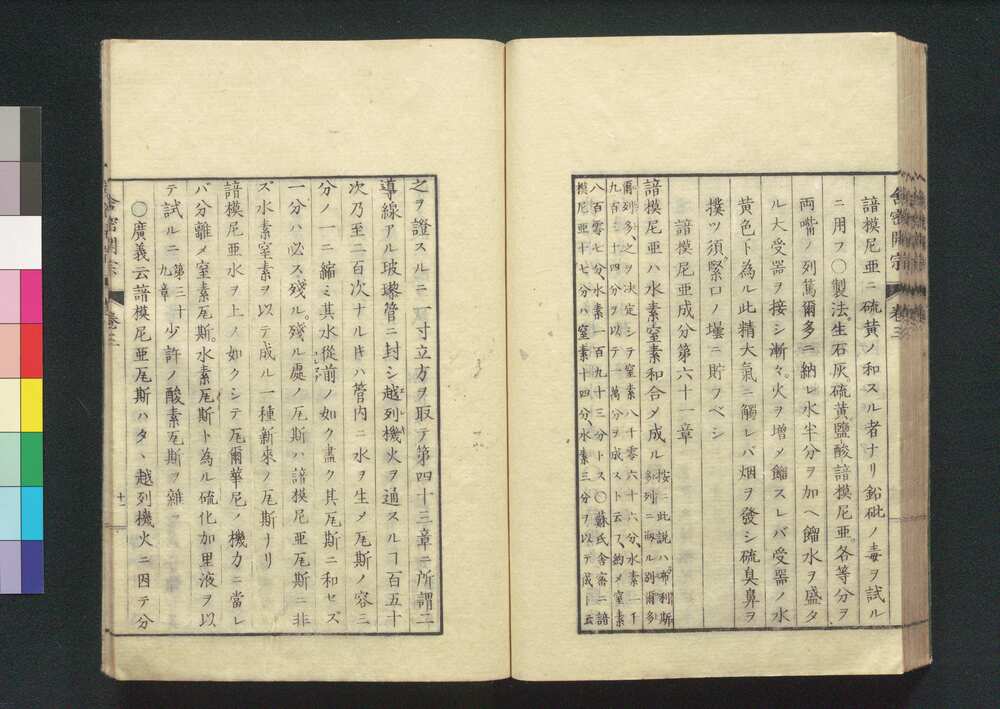 諳模尼亜ニ硫黄ノ和スル者ナリ鉛砒ノ毒ヲ試ル
ニ用フ○製法生石灰硫黄鹽酸諳模尼亜各等分ヲ
両嘴ノ列篤爾多ニ納レ水半分ヲ加ヘ餾水ヲ盛タ
ル大受器ヲ接シ漸々火ヲ増メ餾スレバ受器ノ水
黄色ト為ル此精大氣ニ觸レバ烟ヲ發シ硫臭鼻ヲ
撲ツ須緊口ノ壜ニ貯フベシ
諳模尼亜成分第六十一章
諳模尼亜ハ水素窒素和合メ成ル
按ニ此説ハ布利斯
多列ニ
爾列多之ヲ決定シテ窒素八千零六十六分水素一千
九百三十四分ヲ以テ一萬分ヲ成スト云フ約メ窒素
八百零七分水素一百九十三分トス○蘇氏舎密ニ諳
模尼亜十七分ハ窒素十四分水素三分ヲ以テ成ト云
舎密開宗 巻三
之ヲ證スルニ一寸立方ヲ取テ第四十三章ニ所謂二
導線アル玻瓈管ニ封シ越列機火ヲ通スルヿ一百五十
次乃至二百次ナルキハ管内ニ水ヲ生メ瓦斯ノ容三
分ノ一ニ縮ミ其水從前ノ如ク盡ク其瓦斯ニ和セズ
一分ハ必ス残ル残ル處ノ瓦斯ハ諳模尼亜瓦斯ニ非
ズ水素窒素ヲ以テ成ル一種新來ノ瓦斯ナリ
諳模尼亜水ヲ上ノ如クシテ瓦爾華尼ノ機力ニ當レ
バ分離メ窒素瓦斯水素瓦斯ト為ル硫化加里液ヲ以
テ試ルニ第三十九章少許ノ酸素瓦斯ヲ雜フ
○廣義云諳模尼亜瓦斯ハタヽ越列機火ニ因テ分
舎密開宗 巻三
十二